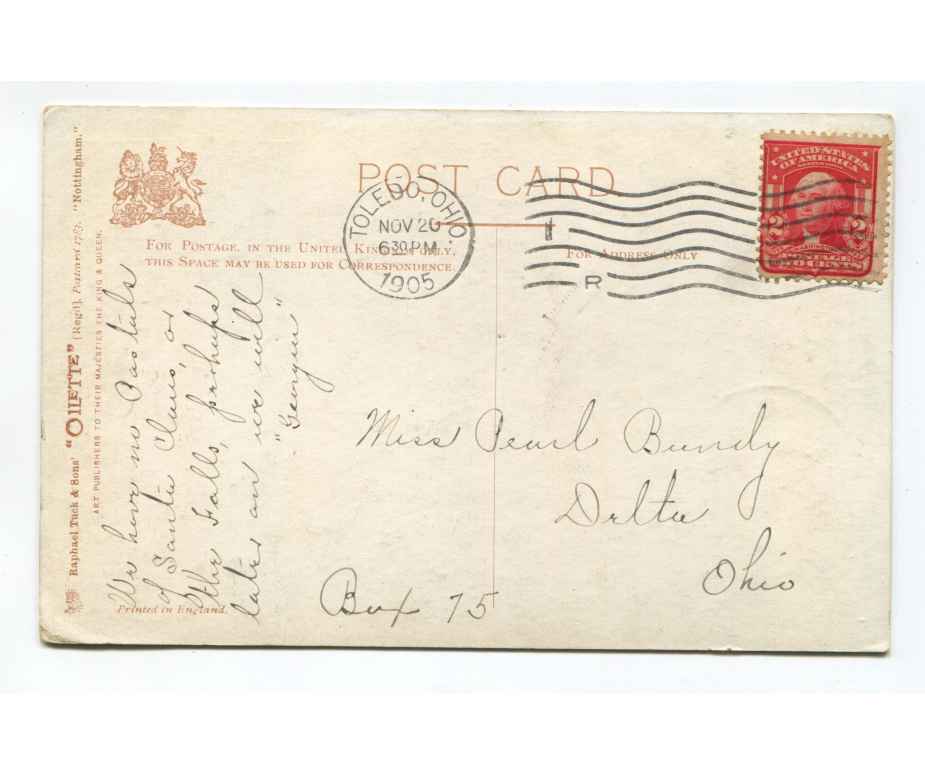 POST CARD
FOR POSTAGE, IN THE UNITED KINGDOM ONLY,
THIS SPACE MAY BE USED FOR CORRESPONDENCE.
FOR ADDRESS ONLY
TOLEDO, OHIO.
NOV 20
6 30 PM
1905
R
UNITED STATES
OF AMERICA
2 2
POSTAGE
TWO CENTS
Raphael Tuck & Sons' "OILETTE" (Regd.), Postcard 1783. "Nottingham."
ART PUBLISHERS TO THEIR MAJESTIES THE KING & QUEEN.
We have no Pastals
of Santa Claus, or
the Falls, perhaps
later on we will
"Georgin"
Miss Pearl Bundy
Delta
Ohio
Box 75
Printed in England.